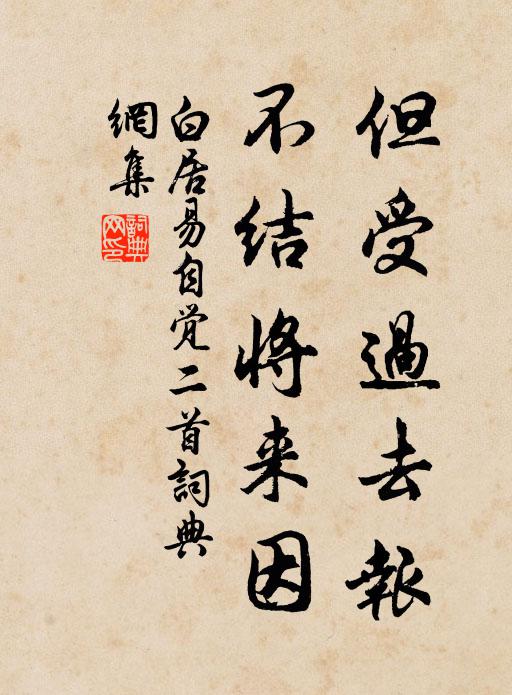 但受過去報
不结将来因
白居易自觉二首詞典
網集
詞典
网印